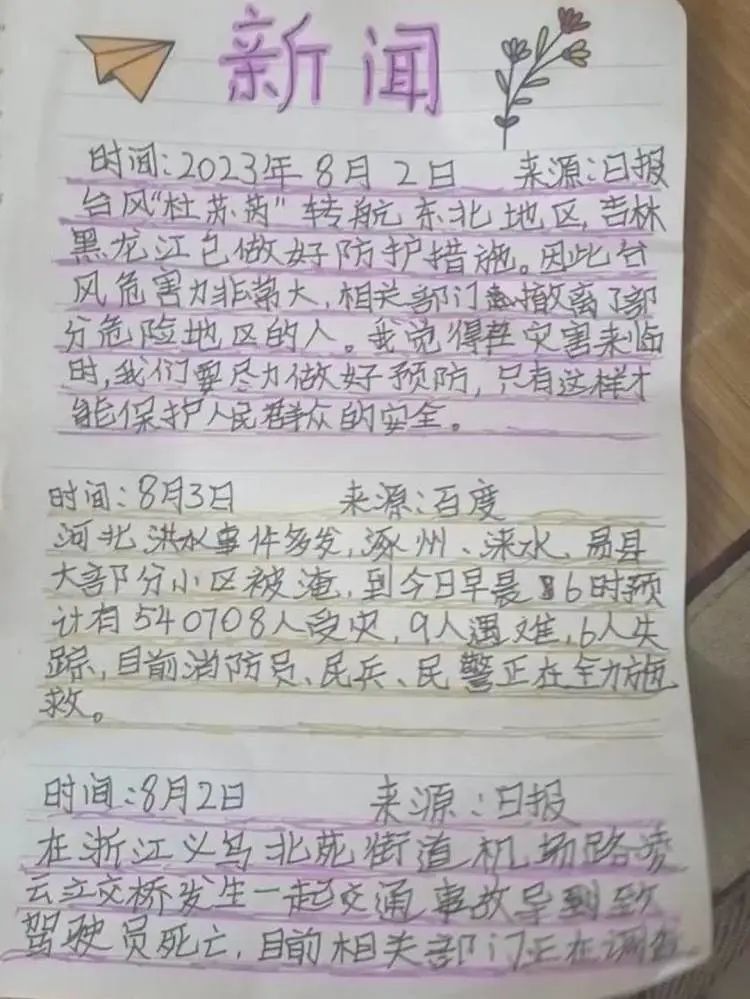 新闻
时间:2023年8月2日 来源:日报
台风“杜苏芮”转航东北地区,吉林
黑龙江已做好防护措施。因此台
风危害力非常大,相关部门撤离了部
分危险地区的人。我觉得在灾害来临
时,我们要尽力做好预防,只有这样才
能保护人民群众的安全。
时间:8月3日 来源:百度
河北洪水事件多发,涿州、涞水、易县
大部分小区被淹,到今日早晨6时预
计有540708人受灾,9人遇难,6人失
踪,目前消防员、民兵、民警正在全力施
救。
时间:8月2日 来源:日报
在浙江义乌北苑街道机场路凌
云立交桥发生一起交通事故导到致
驾驶员死亡,目前相关部门正在调查